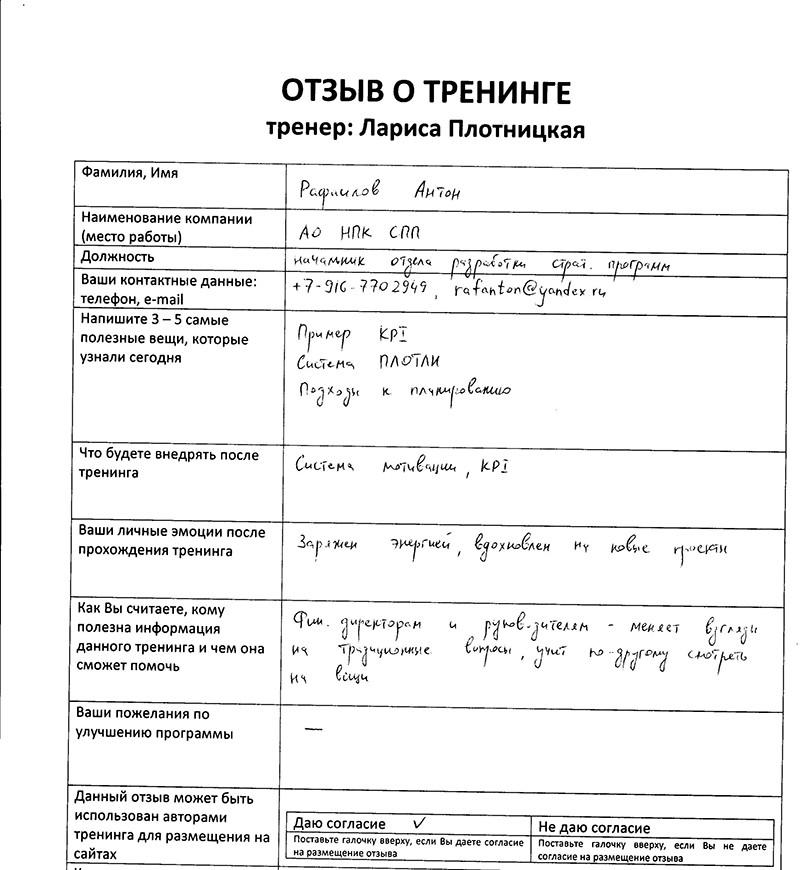 ОТЗЫВ О ТРЕНИНГЕ
тренер: Лариса Плотницкая
Фамилия, Имя
Рафаилов Антон
Наименование компании
(место работы)
АО НПК СПП
Должность
начальник отдела разработки страт. программ
Ваши контактные данные:
телефон, e-mail
+7-916-7702949, rafanton@yandex.ru
Напишите 3 – 5 самые
полезные вещи, которые
узнали сегодня
Пример KPI
Система ПЛОТЛИ
Подходы к планированию
Что будете внедрять после
тренинга
Система мотивации, KPI
Ваши личные эмоции после
прохождения тренинга
Заряжен энергией, вдохновлен на новые проекты
Как Вы считаете, кому
полезна информация
данного тренинга и чем она
сможет помочь
Фин. директорам и руков-дителям - меняет взгляды
на традиционные вопросы, учит по-другому смотреть
на вещи
Ваши пожелания по
улучшению программы
—
Данный отзыв может быть
использован авторами
тренинга для размещения на
сайтах
Даю согласие ✓
Поставьте галочку вверху, если Вы даете согласие
на размещение отзыва
Не даю согласие
Поставьте галочку вверху, если Вы не даете
согласие на размещение отзыва